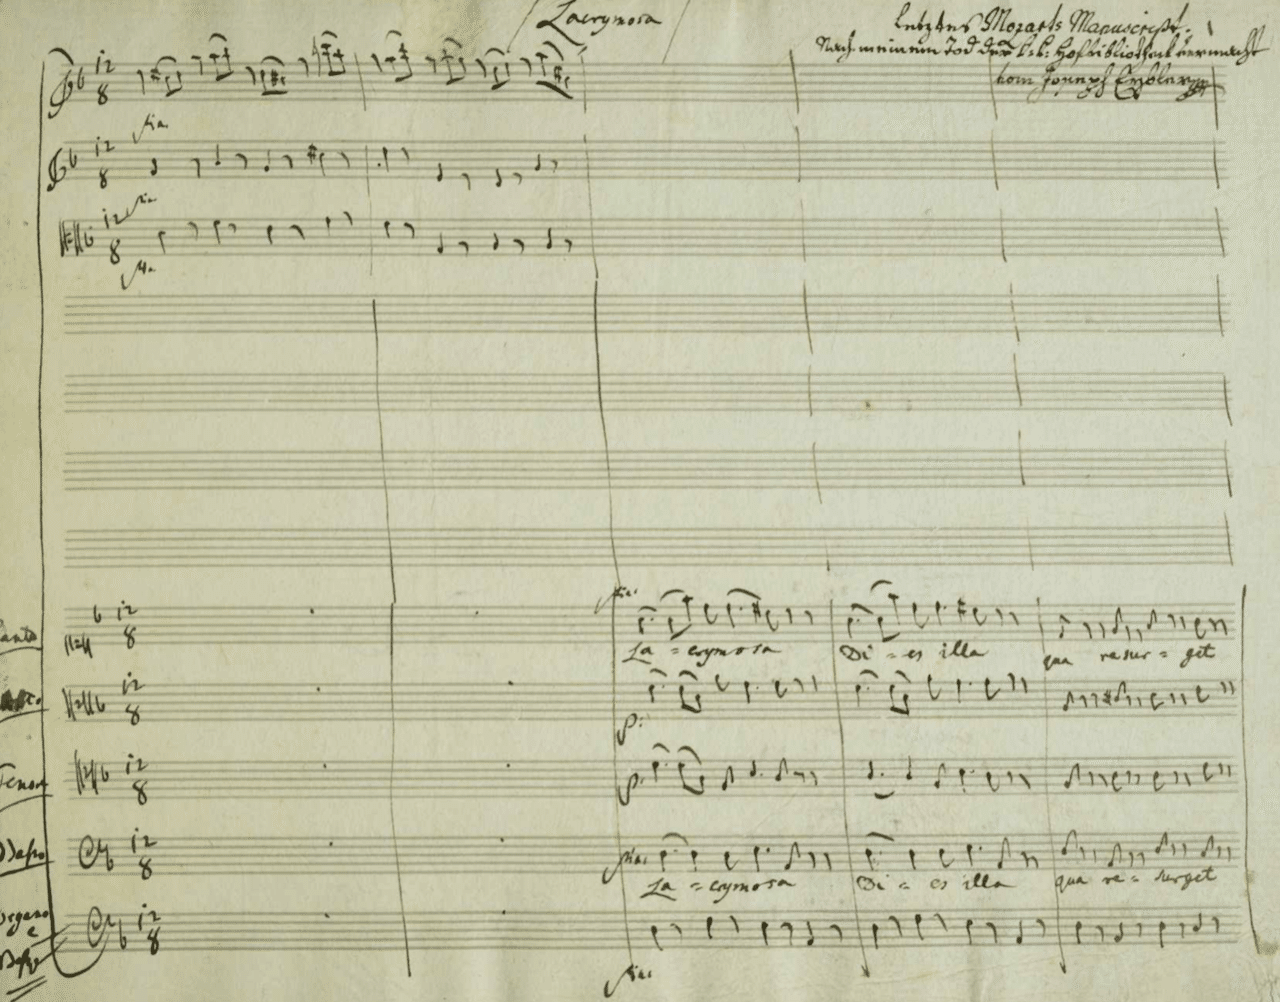 Lacrymosa
letztes Mozarts Manuscript.
Nach meinem Tod der k:k: Hofbibliothek vermacht
vom Joseph Eybler
12
8
pia.
12
8
pia.
12
8
pia.
Canto
12
8
pia:
La = crymosa Di = es illa qua resur = get
Alto
12
8
p:
Tenore
12
8
p:
Basso
12
8
pia:
La = crymosa Di = es illa qua re = surget
Organo
e
Bassi
12
8
pia: